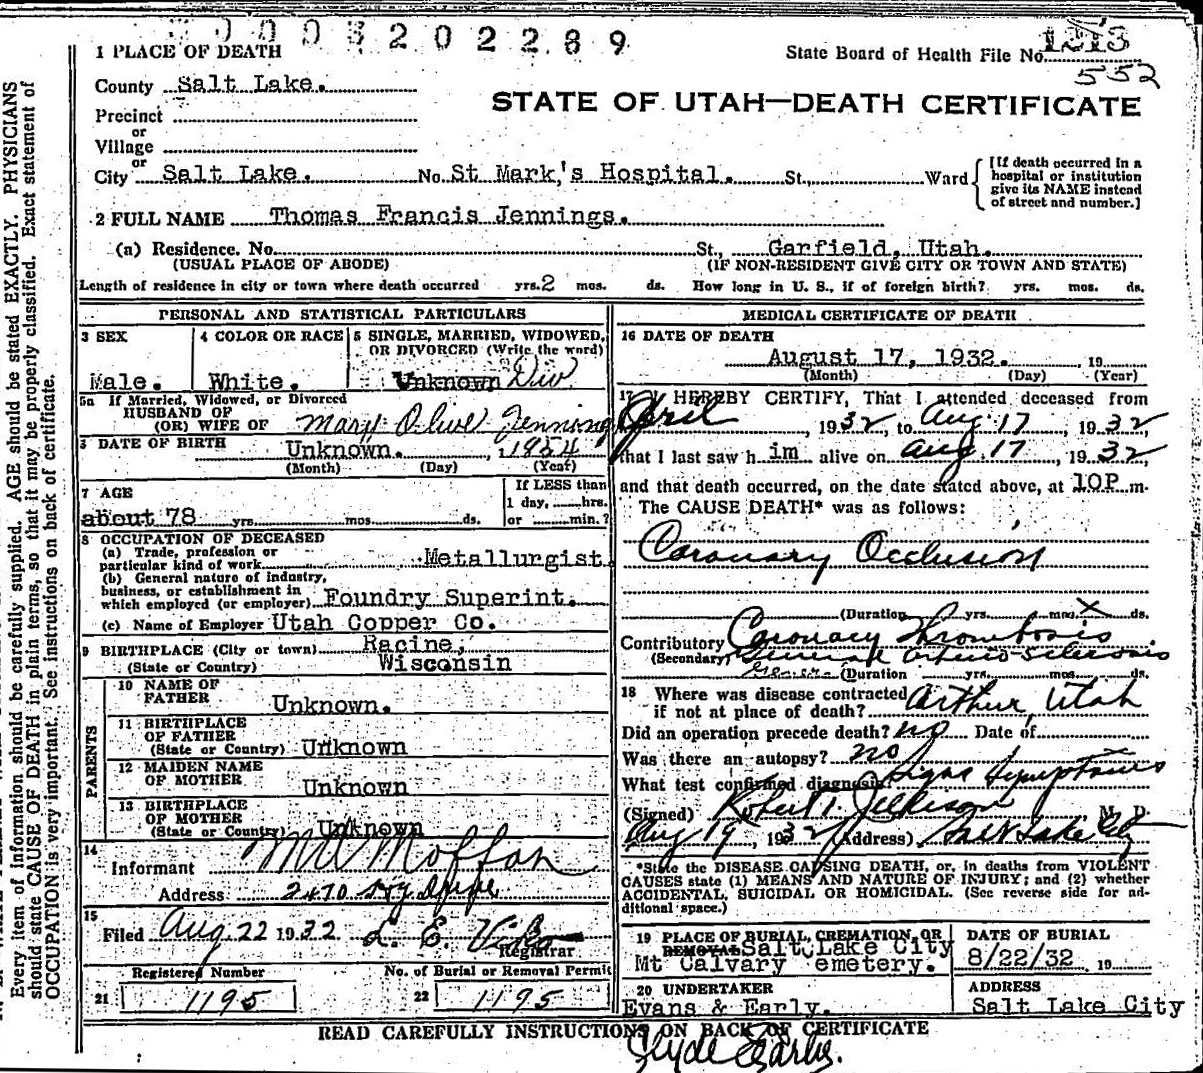 0003202289
1 PLACE OF DEATH
State Board of Health File No. 1313
552
County Salt Lake.
STATE OF UTAH—DEATH CERTIFICATE
Precinct
or
Village
or
City Salt Lake. No. St Mark's Hospital. St., Ward
[If death occurred in a hospital or institution give its NAME instead of street and number.]
2 FULL NAME Thomas Francis Jennings.
(a) Residence. No. St., Garfield, Utah.
(USUAL PLACE OF ABODE) (IF NON-RESIDENT GIVE CITY OR TOWN AND STATE)
Length of residence in city or town where death occurred yrs. 2 mos. ds. How long in U. S., if of foreign birth? yrs. mos. ds.
PERSONAL AND STATISTICAL PARTICULARS
3 SEX
Male.
4 COLOR OR RACE
White.
5 SINGLE, MARRIED, WIDOWED, OR DIVORCED (Write the word)
Unknown Div
5a If Married, Widowed, or Divorced
HUSBAND OF
(OR) WIFE OF Mary Olive Jennings
6 DATE OF BIRTH Unknown. , 1854
(Month) (Day) (Year)
7 AGE
about 78 yrs. mos. ds.
If LESS than
1 day, hrs.
or min.?
8 OCCUPATION OF DECEASED
(a) Trade, profession or
particular kind of work Metallurgist
(b) General nature of industry,
business, or establishment in
which employed (or employer) Foundry Superint.
(c) Name of Employer Utah Copper Co.
9 BIRTHPLACE (City or town) Racine,
(State or Country) Wisconsin
PARENTS
10 NAME OF
FATHER Unknown.
11 BIRTHPLACE
OF FATHER
(State or Country) Unknown
12 MAIDEN NAME
OF MOTHER Unknown
13 BIRTHPLACE
OF MOTHER
(State or Country) Unknown
14
Informant
Address 2470
15
Filed Aug 22 1932 L. E.
Registrar
Registered Number
21 1195
No. of Burial or Removal Permit
22 1195
MEDICAL CERTIFICATE OF DEATH
16 DATE OF DEATH
August 17, 1932. 19
(Month) (Day) (Year)
17 I HEREBY CERTIFY, That I attended deceased from
April , 1932, to Aug 17 , 1932
that I last saw him alive on Aug 17 , 1932
and that death occurred, on the date stated above, at 10P m.
The CAUSE DEATH* was as follows:
Coronary Occlusion
(Duration yrs. mos. X ds.
Contributory Coronary Thrombosis
(Secondary) General Arterio-sclerosis
(Duration yrs. mos. ds.
18 Where was disease contracted
if not at place of death? Arthur, Utah
Did an operation precede death? no Date of
Was there an autopsy? no
What test confirmed diagnosis? Signs Symptoms
(Signed) Robert T. Jellison M. D.
Aug 19, 1932 (Address) Salt Lake City
*State the DISEASE CAUSING DEATH, or, in deaths from VIOLENT
CAUSES state (1) MEANS AND NATURE OF INJURY; and (2) whether
ACCIDENTAL, SUICIDAL OR HOMICIDAL. (See reverse side for ad-
ditional space.)
19 PLACE OF BURIAL, CREMATION, OR
REMOVAL Salt Lake City
Mt Calvary emetery.
DATE OF BURIAL
8/22/32 19
20 UNDERTAKER
Evans & Early.
ADDRESS
Salt Lake City
READ CAREFULLY INSTRUCTIONS ON BACK OF CERTIFICATE
Clyde Early.
Every item of information should be carefully supplied. AGE should be stated EXACTLY. PHYSICIANS
should state CAUSE OF DEATH in plain terms, so that it may be properly classified. Exact statement of
OCCUPATION is very important. See instructions on back of certificate.